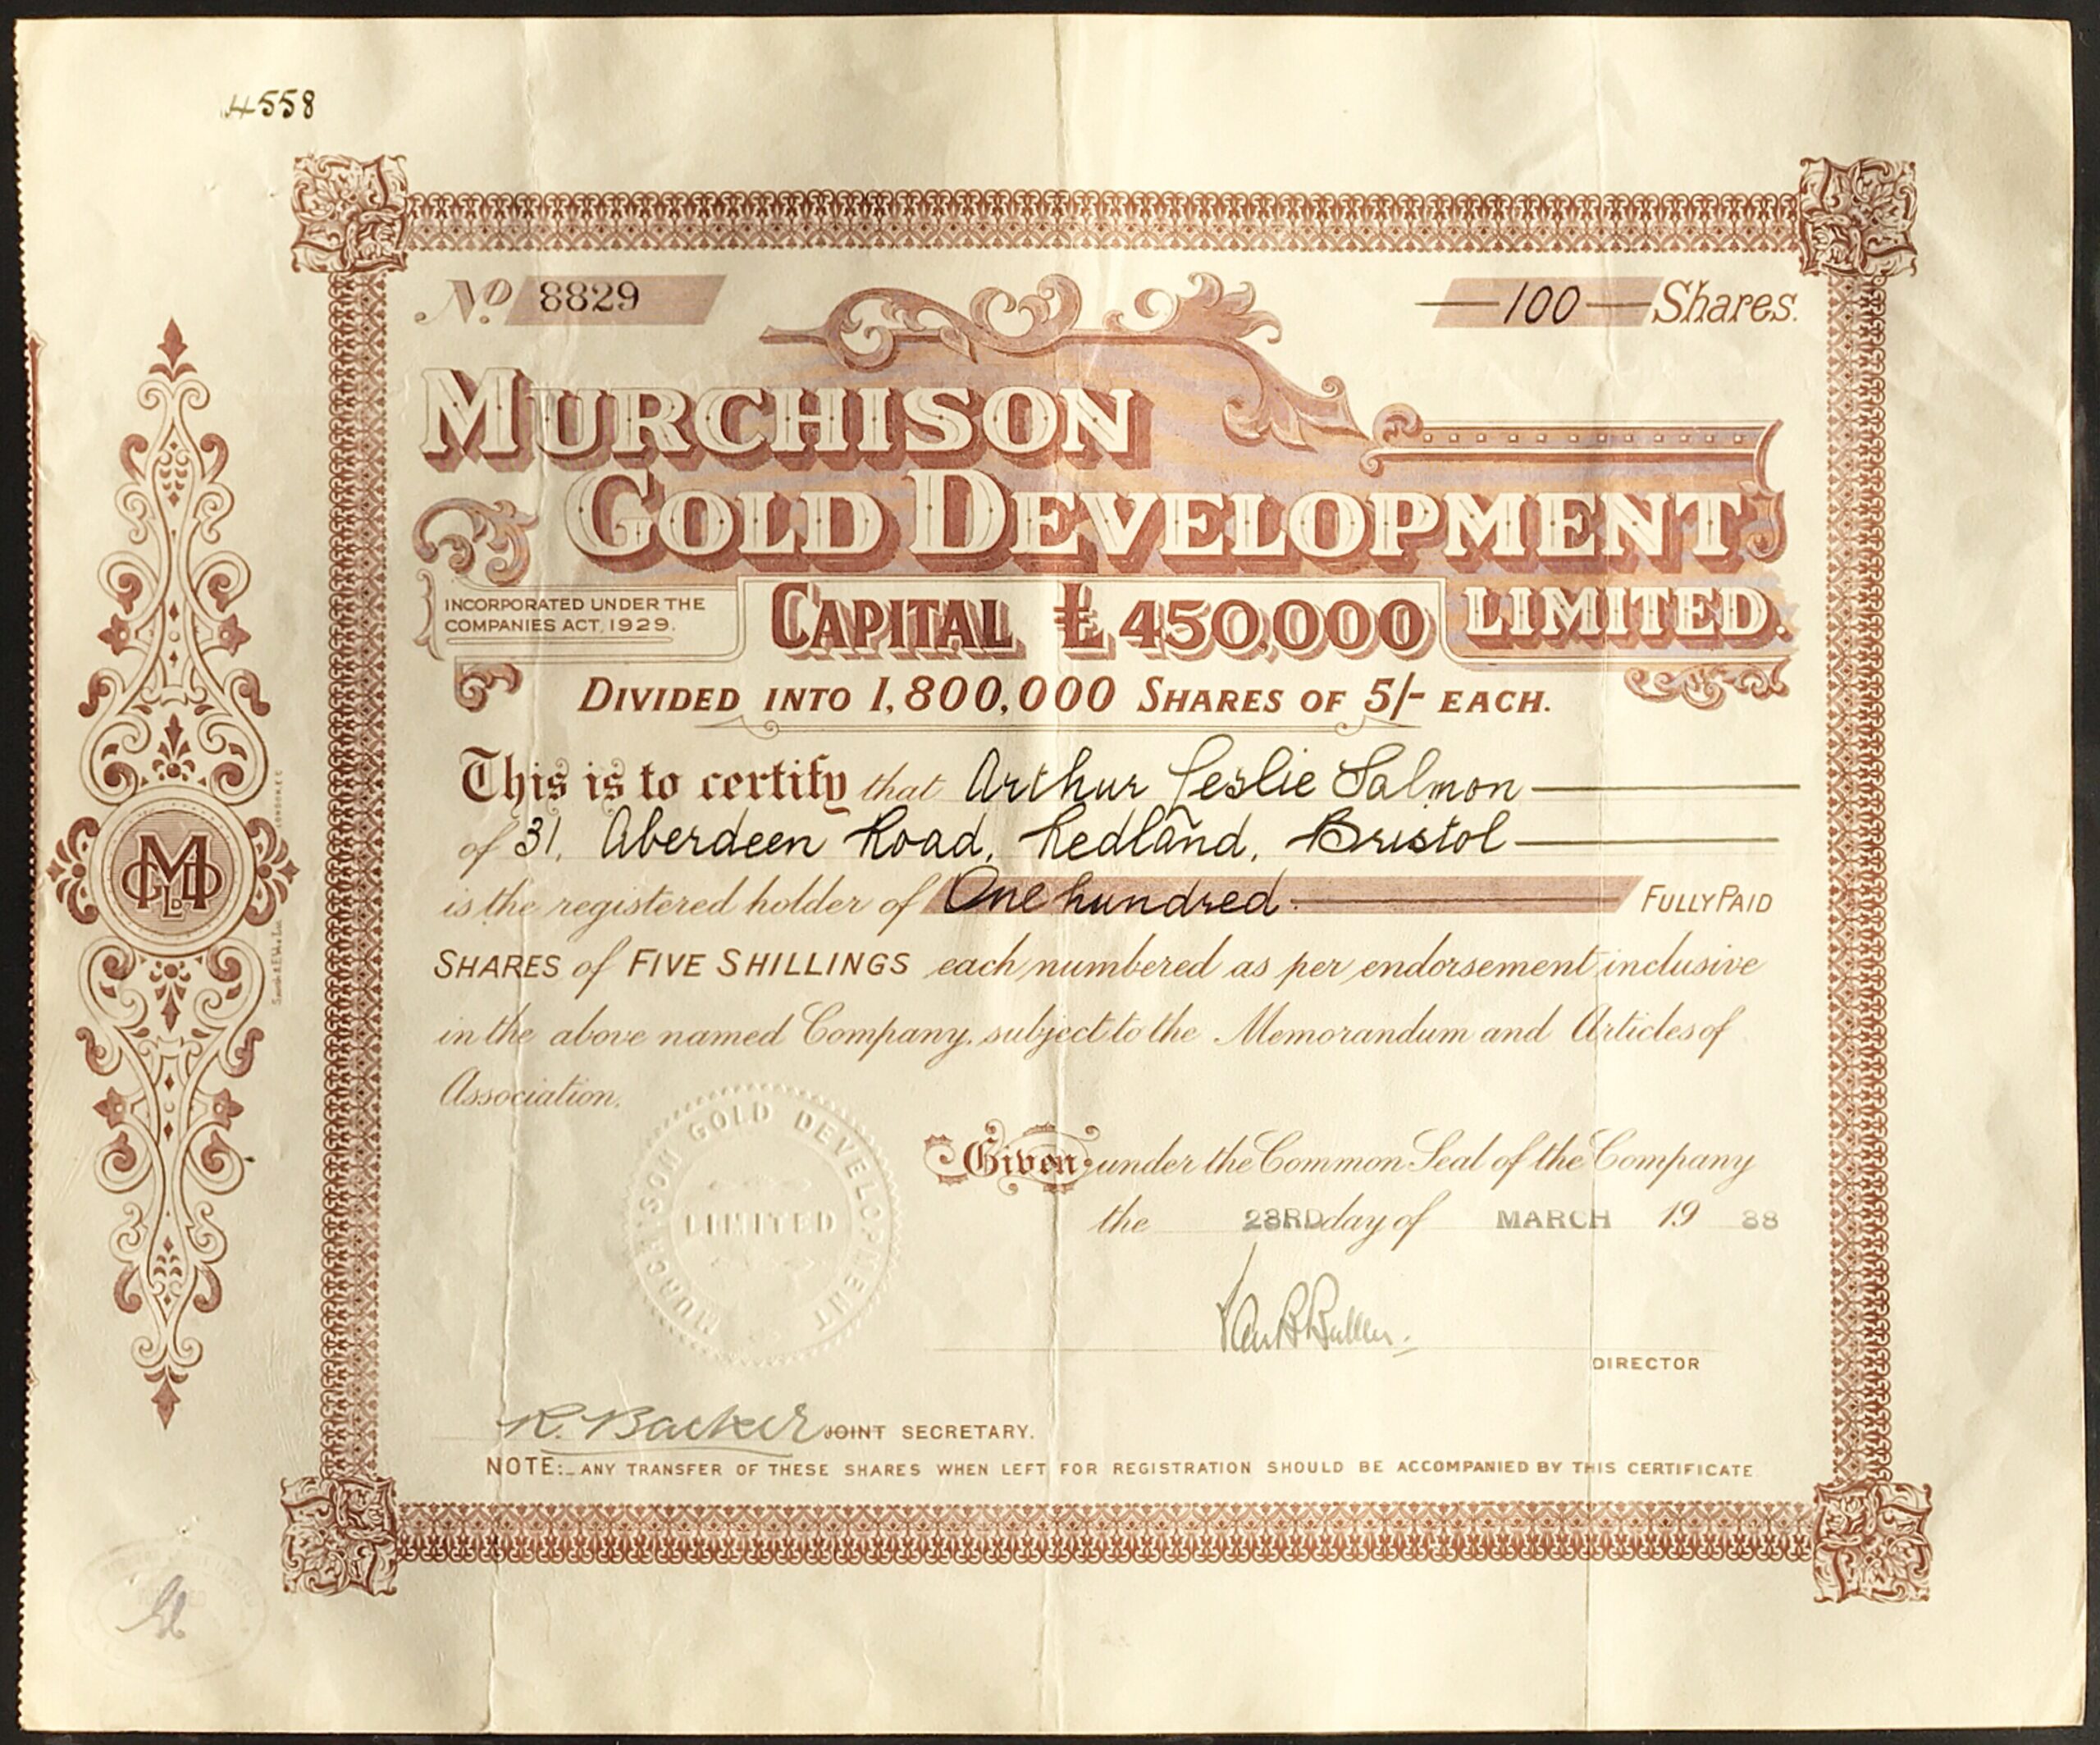 4558
No. 8829
100 Shares.
MURCHISON
GOLD DEVELOPMENT
LIMITED.
INCORPORATED UNDER THE
COMPANIES ACT, 1929.
CAPITAL £450,000
DIVIDED INTO 1,800,000 SHARES OF 5/- EACH.
This is to certify that Arthur Leslie Salmon
of 31, Aberdeen Road, Redland, Bristol
is the registered holder of One hundred FULLY PAID
SHARES of FIVE SHILLINGS each numbered as per endorsement inclusive
in the above named Company, subject to the Memorandum and Articles of
Association.
MURCHISON GOLD DEVELOPMENT
LIMITED
Given under the Common Seal of the Company
the 23RD day of MARCH 19 38
DIRECTOR
R. Barker JOINT SECRETARY.
NOTE:- ANY TRANSFER OF THESE SHARES WHEN LEFT FOR REGISTRATION SHOULD BE ACCOMPANIED BY THIS CERTIFICATE
MGD
LD